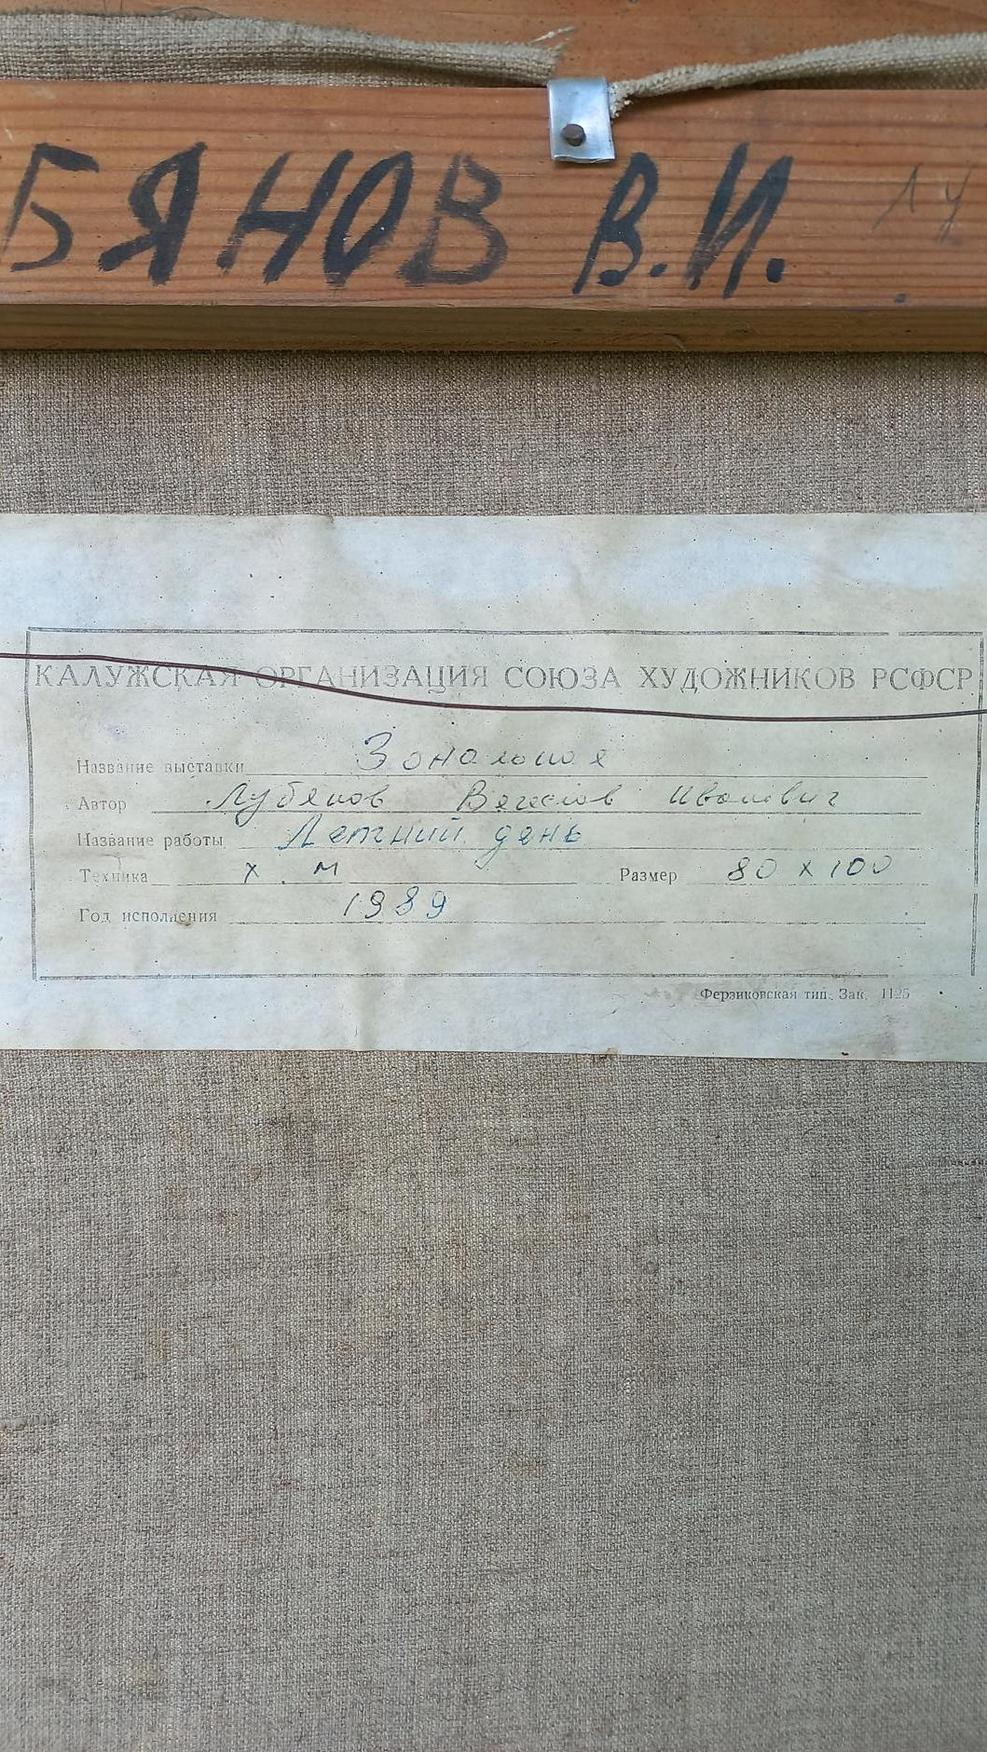 БЯНОВ В.И. Лу
КАЛУЖСКАЯ ОРГАНИЗАЦИЯ СОЮЗА ХУДОЖНИКОВ РСФСР
Название выставки Зональная
Автор Лубянов Вячеслав Иванович
Название работы Летний день
Техника х. м Размер 80 х 100
Год исполнения 1989
Ферзиковская тип. Зак. 1125